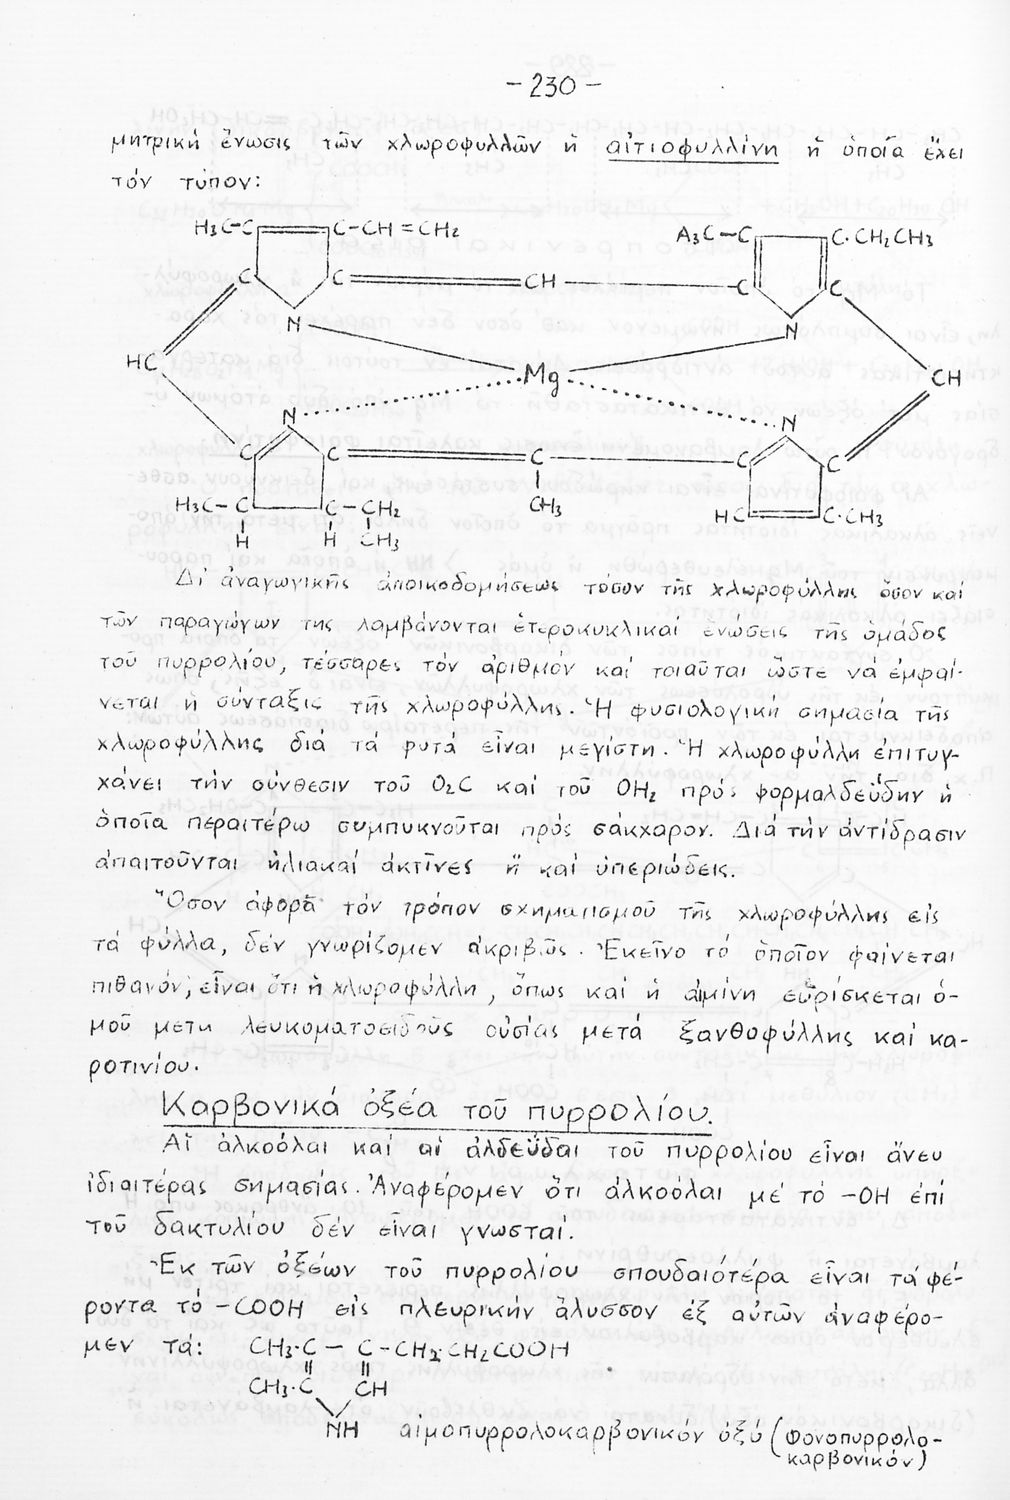 - 230 -
μητρική ἕνωσις τῶν χλωροφυλλῶν ἡ αἰτιοφυλλίνη ἡ ὁποῖα ἔχει
τόν τύπον:
H₃C-C C-CH=CH₂ A₃C-C C·CH₂CH₃
C C CH C C
N N
HC Mg CH
N N
C C C C C
H₃C-C C-CH₂ CH₃ HC C·CH₃
H H CH₃
Δι' ἀναγωγικῆς ἀποικοδομήσεως τόσον τῆς χλωροφύλλης ὅσον καί
τῶν παραγώγων της λαμβάνονται ἑτεροκυκλικαί ἑνώσεις τῆς ὁμάδος
τοῦ πυρρολίου, τέσσαρες τόν ἀριθμόν καί τοιαῦται ὥστε νά ἐμφαί-
νεται ἡ σύνταξις τῆς χλωροφύλλης. Ἡ φυσιολογική σημασία τῆς
χλωροφύλλης διά τά φυτά εἶναι μεγίστη. Ἡ χλωροφύλλη ἐπιτυγ-
χάνει τήν σύνθεσιν τοῦ O₂C καί τοῦ OH₂ πρός φορμαλδεΰδην ἡ
ὁποῖα περαιτέρω συμπυκνοῦται πρός σάκχαρον. Διά τήν ἀντίδρασιν
ἀπαιτοῦνται ἡλιακαί ἀκτῖνες ἤ καί ὑπεριώδεις.
Ὅσον ἀφορᾶ τόν τρόπον σχηματισμοῦ τῆς χλωροφύλλης εἰς
τά φύλλα, δέν γνωρίζομεν ἀκριβῶς. Ἐκεῖνο τό ὁποῖον φαίνεται
πιθανόν, εἶναι ὅτι ἡ χλωροφύλλη, ὅπως καί ἡ αἱμίνη εὑρίσκεται ὁ-
μοῦ μετά λευκοματοειδοῦς οὐσίας μετά ξανθοφύλλης καί κα-
ροτινίου.
Καρβονικά ὀξέα τοῦ πυρρολίου.
Αἵ ἀλκοόλαι καί αἱ ἀλδεΰδαι τοῦ πυρρολίου εἶναι ἄνευ
ἰδιαιτέρας σημασίας. Ἀναφέρομεν ὅτι ἀλκοόλαι μέ τό -OH ἐπί
τοῦ δακτυλίου δέν εἶναι γνωσταί.
Ἐκ τῶν ὀξέων τοῦ πυρρολίου σπουδαιότερα εἶναι τά φέ-
ροντα τό -COOH εἰς πλευρικήν ἄλυσσον ἐξ αὐτῶν ἀναφέρο-
μεν τά: CH₃·C - C-CH₂·CH₂COOH
CH₃·C CH
NH αἱμοπυρρολοκαρβονικόν ὀξύ (Φονοπυρρολο-
καρβονικόν)